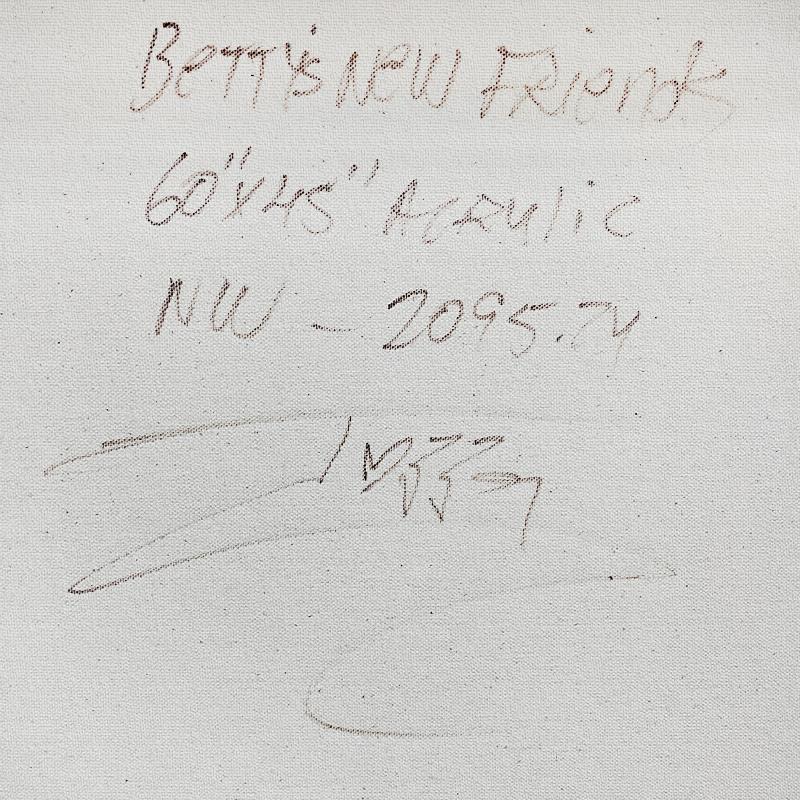 BeTTy's NeW FRiends
60"x45" AcRylic
NW - 2095.24